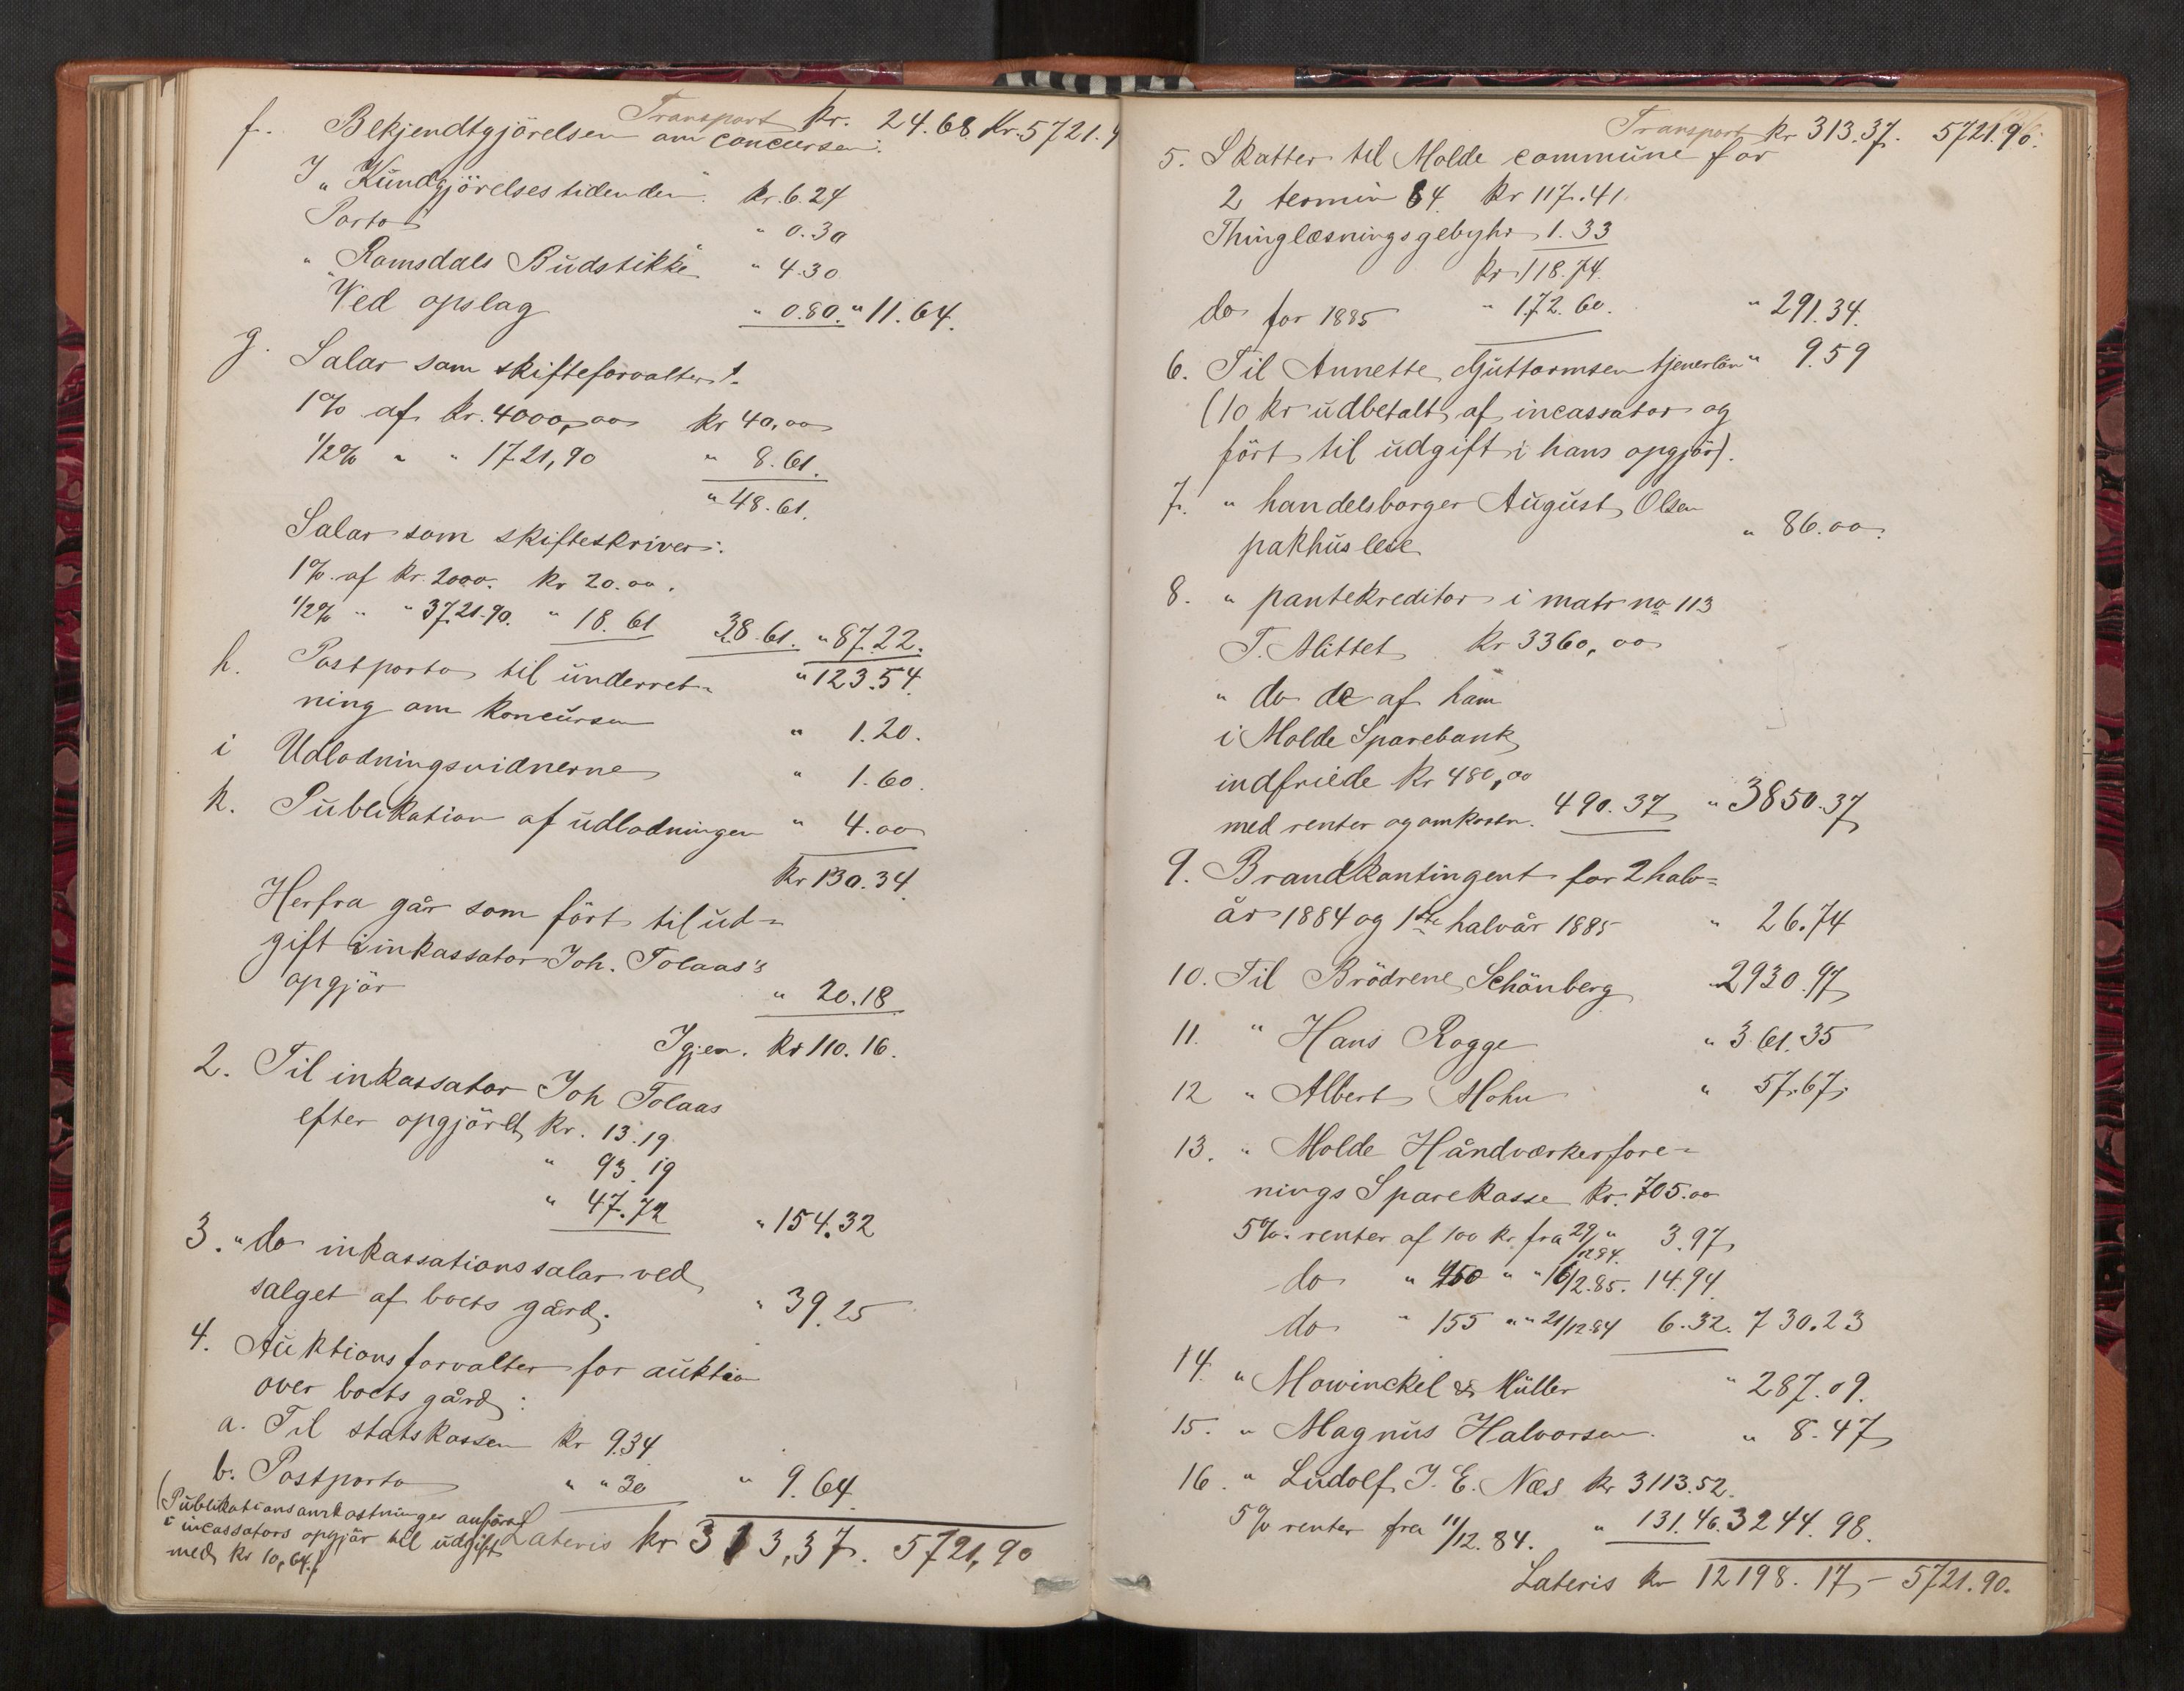 Transport kr. 24.68. Kr. 5721.9
f. Bekjendtgjörelsen om concursen:
I „Kundgjörelsestidenden“ kr. 6.24
Porto „ 0.30
„ Romsdals Budstikke „ 4.30
Ved opslag „ 0.80. „ 11.64.
g. Salar som skifteforvalter:
1% af kr. 4000,00 kr 40,00
1/2% „ „ 1721,90 „ 8.61.
„ 48.61.
Salar som skifteskriver:
1% af kr. 2000. kr 20.00.
1/2% „ „ 3721.90. „ 18.61 38.61. „ 87.22.
„ 123.54.
h. Postporto til underret-
ning om koncursen „ 1.20.
i Udlodningsvidnerne „ 1.60.
k. Publikation af udlodningen „ 4.00
kr 130.34.
Herfra går som fört til ud-
gift i inkassator Joh. Tolaas's
opgjör „ 20.18
Igjen. kr 110.16.
2. Til inkassator Joh Tolaas
efter opgjöret kr. 13.19
„ 93.19
„ 47.72 „ 154.32
3. „ do inkassationssalar ved
salget af boets gård. „ 39.25
4. Auktionsforvalter for auktion
over boets gård:
a. Til statskassen kr 9.34
b. Postporto „ „ 30 „ 9.64
(Publikationsomkostninger anfört
i incassators opgjör til udgift
med kr 10,64.)
Lateris kr 313,37. 5721,90
Transport kr 313.37. 5721.90.
5. Skatter til Molde commune for
2 termin 84. kr 117.41.
Thinglæsningsgebyhr 1.33
kr 118.74.
do for 1885 „ 172.60. „ 291.34.
6. Til Annette Guttormsen tjenerlön „ 9.59
(10 kr udbetalt af incassator og
fört til udgift i hans opgjör).
7. „ handelsborger August Olsen
pakhusleie „ 86.00.
8. „ pantekreditor i matr no 113
T. Mittet kr 3360,00
„ do de af ham
i Molde Sparebank
indfriede kr 480,00
med renter og omkostn. 490.37 „ 3850.37
9. Brandkontingent for 2 halv-
år 1884 og 1ste halvår 1885 „ 26.74
10. Til Brödrene Schönberg „ 2930.97
11. „ Hans Rogge „ 361.35
12 „ Albert Mohn „ 57.67.
13. „ Molde Håndværkerfore-
nings Sparekasse kr. 705.00
5% renter af 100 kr fra 29/12 84. „ 3.97
do „ 450 „ „ 16/2.85. 14.94.
do „ 155 „ „ 21/12.84 6.32. 730.23
14. „ Mowinckel & Müller „ 287.09.
15. „ Magnus Halvorsen „ 8.47
16. „ Ludolf J. E. Næs kr 3113.52.
5% renter fra 11/12.84. „ 131.46. 3244.98.
Lateris kr 12198.17 – 5721.90.